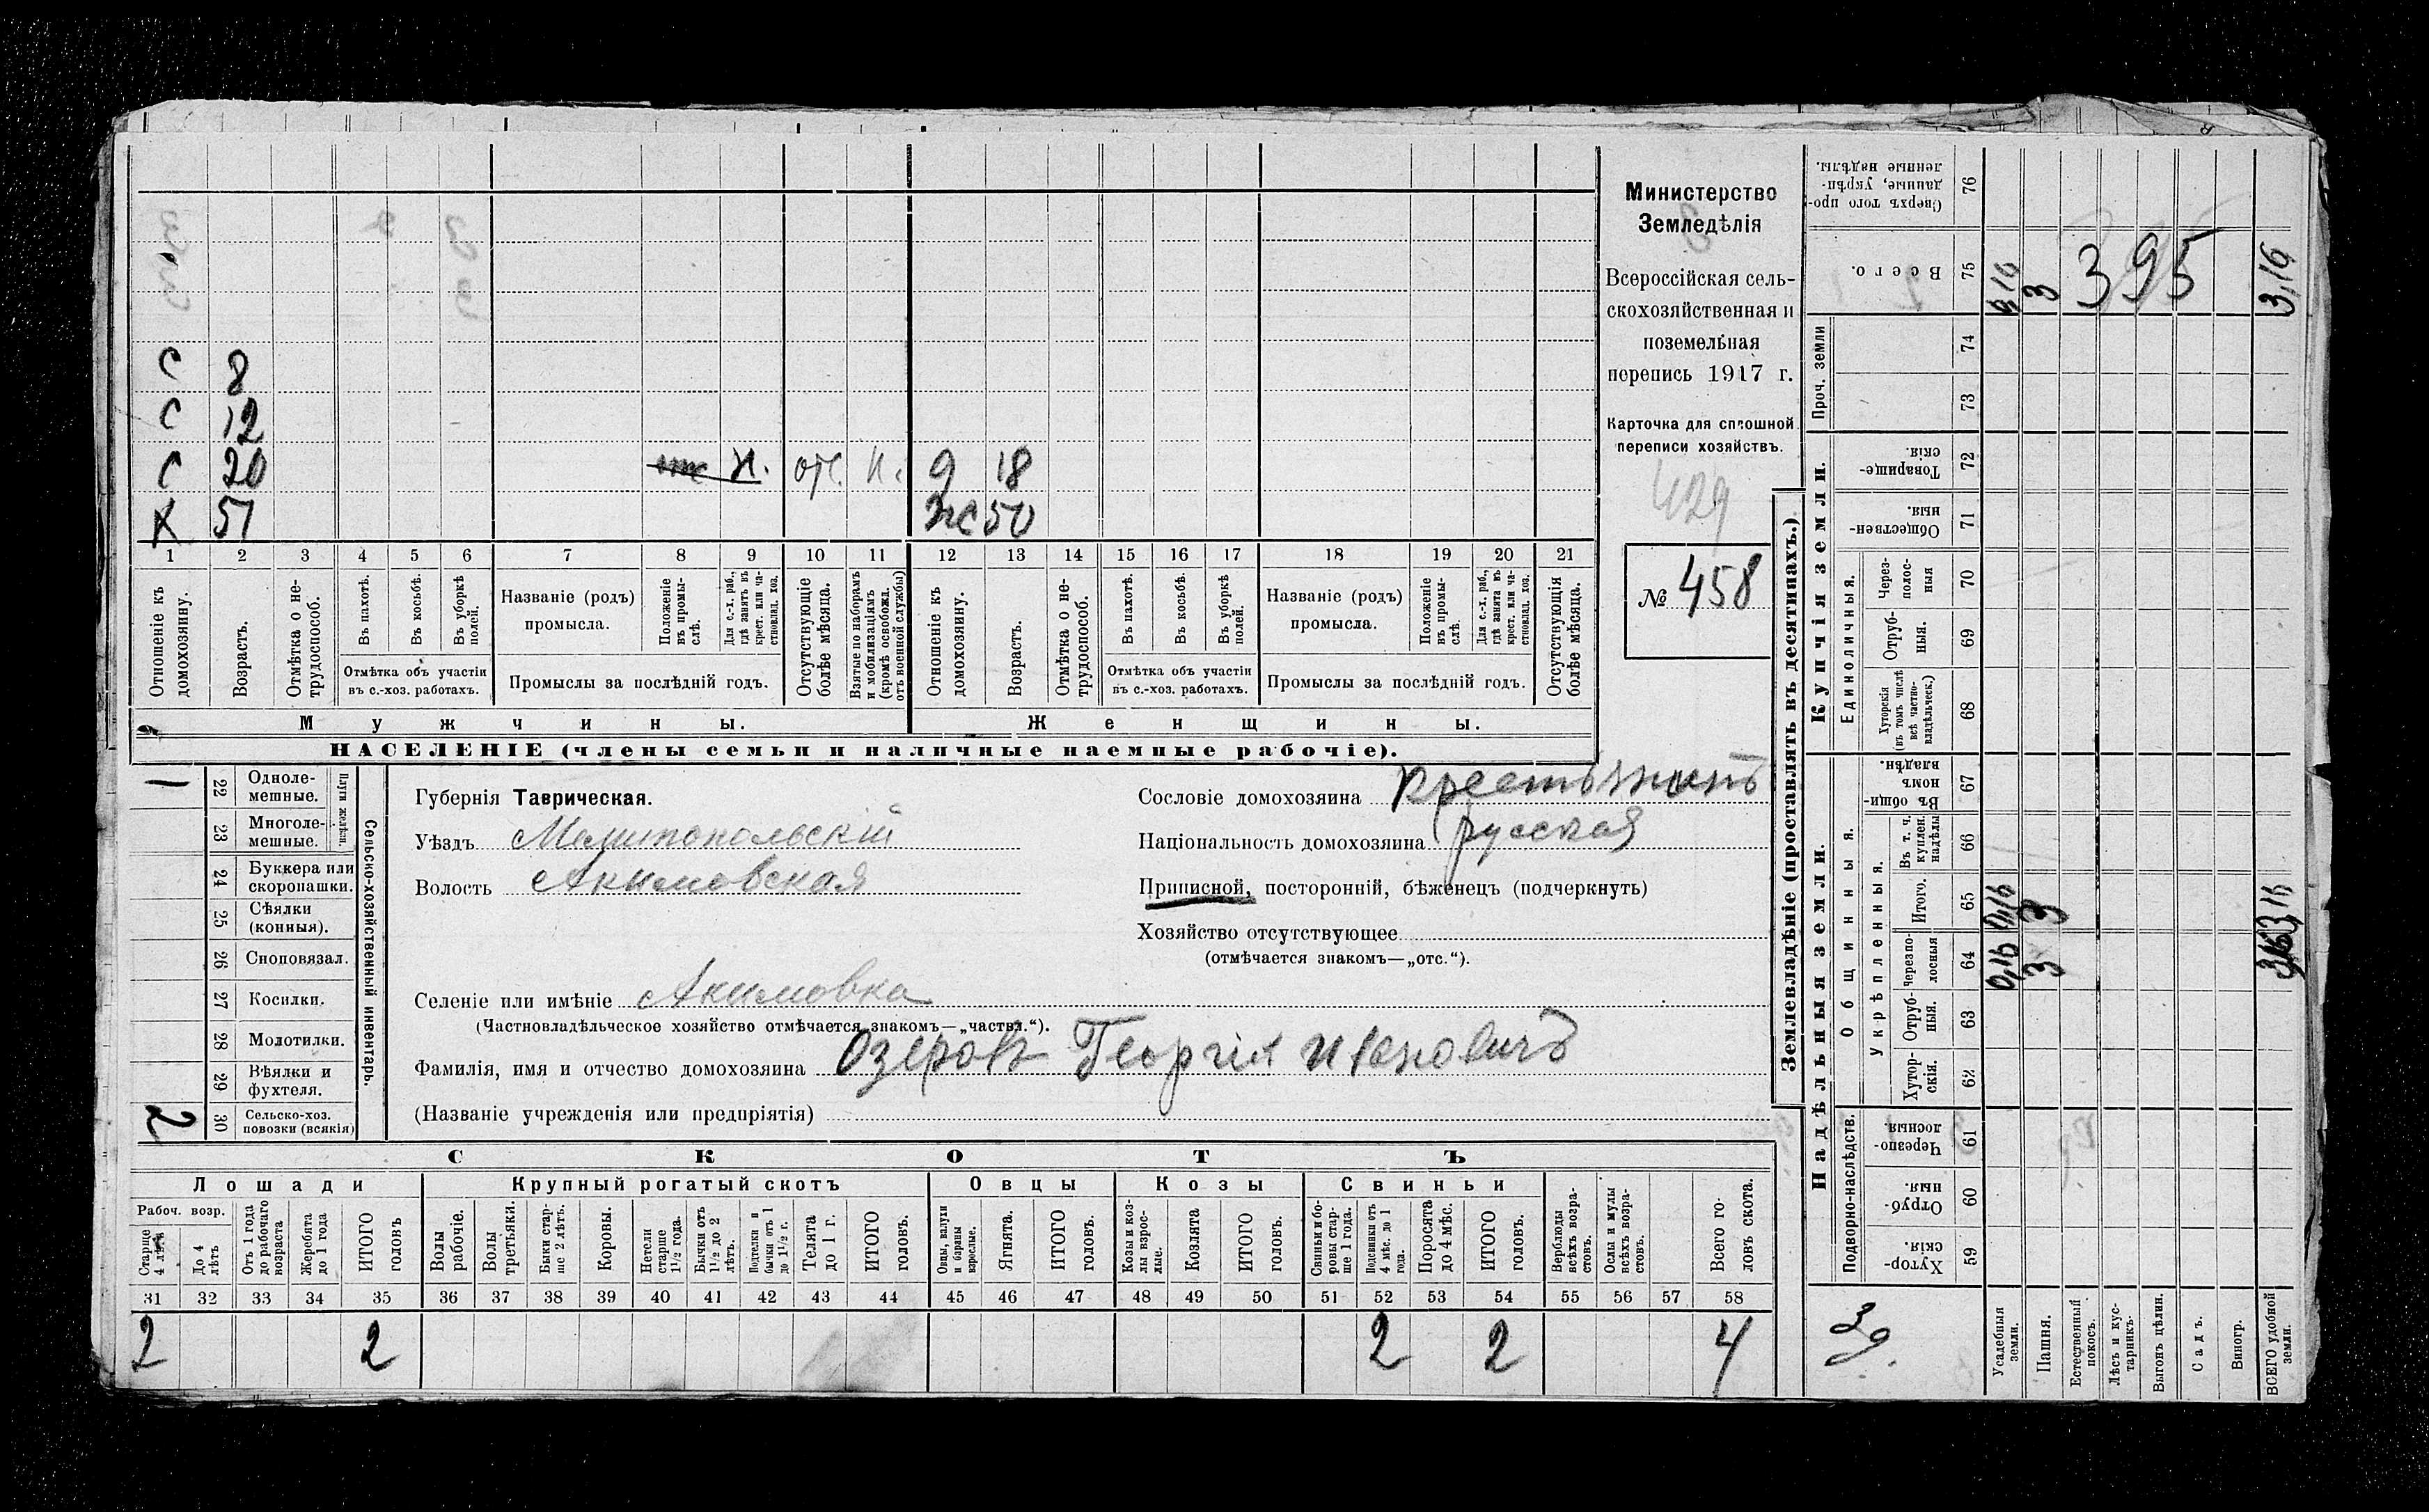 Министерство
Земледѣлія
Всероссійская сель-
скохозяйственная и
поземельная
перепись 1917 г.
Карточка для сплошной
переписи хозяйствъ.
429
№ 458
С 8
С 12
С 20 отс Н. отс. Н. д 18
Х 51 Ж 50
1 2 3 4 5 6 7 8 9 10 11 12 13 14 15 16 17 18 19 20 21
Отношеніе къ домохозяину.
Возрастъ.
Отмѣтка о не-трудоспособ.
Въ пахотѣ.
Въ косьбѣ.
Въ уборкѣ полей.
Отмѣтка объ участіи
въ с.-хоз. работахъ.
Названіе (родъ)
промысла.
Положеніе въ промы-слѣ.
Для с.-х. раб., гдѣ занятъ въ крест. или ча-стновлад. хоз.
Промыслы за послѣдній годъ.
Отсутствующіе болѣе мѣсяца.
Взятые по наборамъ и мобилизаціямъ (кромѣ освобожд. отъ военной службы)
Отношеніе къ домохозяину.
Возрастъ.
Отмѣтка о не-трудоспособ.
Въ пахотѣ.
Въ косьбѣ.
Въ уборкѣ полей.
Отмѣтка объ участіи
въ с.-хоз. работахъ.
Названіе (родъ)
промысла.
Положеніе въ промы-слѣ.
Для с.-х. раб., гдѣ занята въ крест. или ча-стновлад. хоз.
Промыслы за послѣдній годъ.
Отсутствующія болѣе мѣсяца.
Мужчины. Женщины.
НАСЕЛЕНІЕ (члены семьи и наличные наемные рабочіе).
Сельско-хозяйственный инвентарь.
Плуги желѣзн.
1 22 Одноле-мешные.
23 Многоле-мешные.
24 Буккера или скоропашки.
25 Сѣялки (конныя).
26 Сноповязал.
27 Косилки.
28 Молотилки.
29 Вѣялки и фухтеля.
2 30 Сельско-хоз. повозки (всякія)
Губернія Таврическая.
Уѣздъ Мелитопольскій
Волость Акимовская
Сословіе домохозяина крестьянинъ
Національность домохозяина русская
Приписной, посторонній, бѣженецъ (подчеркнуть)
Хозяйство отсутствующее
(отмѣчается знакомъ—„отс.“).
Селеніе или имѣніе Акимовка
(Частновладѣльческое хозяйство отмѣчается знакомъ—„частвл.“).
Фамилія, имя и отчество домохозяина Озеровъ Георгій Ивановичъ
(Названіе учрежденія или предпріятія)
СКОТЪ
Лошади Крупный рогатый скотъ Овцы Козы Свиньи
Рабоч. возр.
Старше 4 лѣтъ
До 4 лѣтъ
Отъ 1 года до рабочаго возраста
Жеребята до 1 года
ИТОГО головъ
Волы рабочіе.
Волы третьяки.
Быки стар-ше 2 лѣтъ.
Коровы.
Нетели старше 1½ года.
Бычки отъ 1½ до 2 лѣтъ.
Подтелки и бычки отъ 1 до 1½ г.
Телята до 1 г.
ИТОГО головъ.
Овцы, валухи и бараны взрослые.
Ягнята.
ИТОГО головъ.
Козы и коз-лы взрос-лые.
Козлята
ИТОГО головъ.
Свиньи и бо-ровы стар-ше 1 года.
Подсвинки отъ 4 мѣс. до 1 года.
Поросята до 4 мѣс.
ИТОГО головъ.
Верблюды всѣхъ возра-стовъ.
Ослы и мулы всѣхъ возра-стовъ.
Всего го-ловъ скота.
31 32 33 34 35 36 37 38 39 40 41 42 43 44 45 46 47 48 49 50 51 52 53 54 55 56 57 58
2 2 2 2 4
Землевладѣніе (проставлять въ десятинахъ.)
Надѣльныя земли. Купчія земли.
Проч. земли
Подворно-наслѣдств.
Общинныя.
Укрѣпленныя.
Единоличныя.
Сверхъ того про-данные, укрѣп-ленные надѣлы. 76
Всего. 75 0,16 3 3,16
395
74
73
Товарище-скія. 72
Обществен-ныя. 71
Через-полос-ныя 70
Отруб-ныя. 69
Хуторскія (въ томъ числѣ всѣ частно-владѣльческ.) 68
Въ общи-номъ владѣн. 67
Въ т. ч. куплен. надѣлы 66
Итого. 65 0,16 3
черезпо-лосныя 64 0,16 3
Отруб-ныя. 63
Хутор-скія. 62
Черезпо-лосныя. 61
Отруб-ныя. 60
Хутор-скія. 59
Усадебныя земли.
Пашня.
Естественный покосъ.
Лѣсъ и кус-тарникъ.
Выгонъ цѣлин.
Садъ.
Виногр.
ВСЕГО удобной земли.